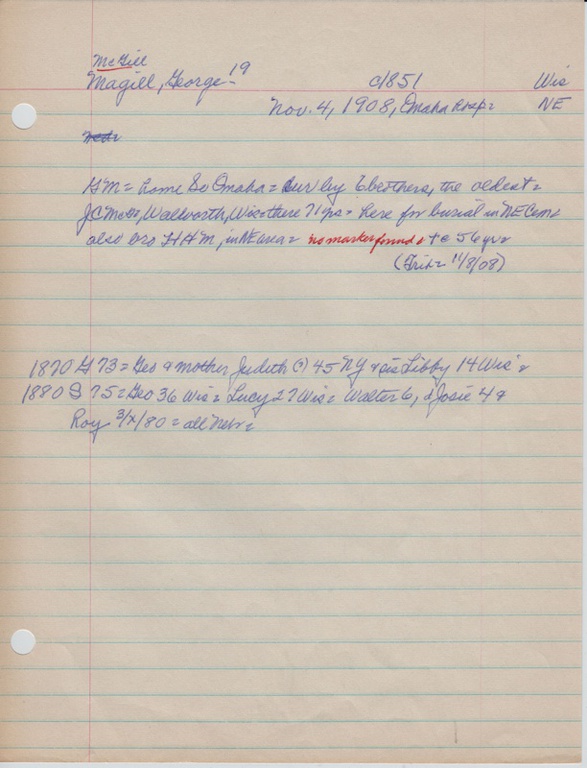 McGill
Magill, George - 19 c1851 Wis
Nov. 4, 1908, Omaha Hosp= NE
GM = home So Omaha = sur by 6 brothers, the oldest =
JCMcG=, Wallworth, Wis= there 71 yrs = here for burial in NE Cem=
also bro HHM, in NE area = no marker found = + @ 56 yr=
(Trib= 11/8/08)
1870 G 73 = Geo & mother Judith 45 NY & sis Libby 14 Wis =
1880 S 75 = Geo 36 Wis = Lucy 27 Wis = Walter 6, d Josie 4 &
Roy 3/x/80 = all Nebr =